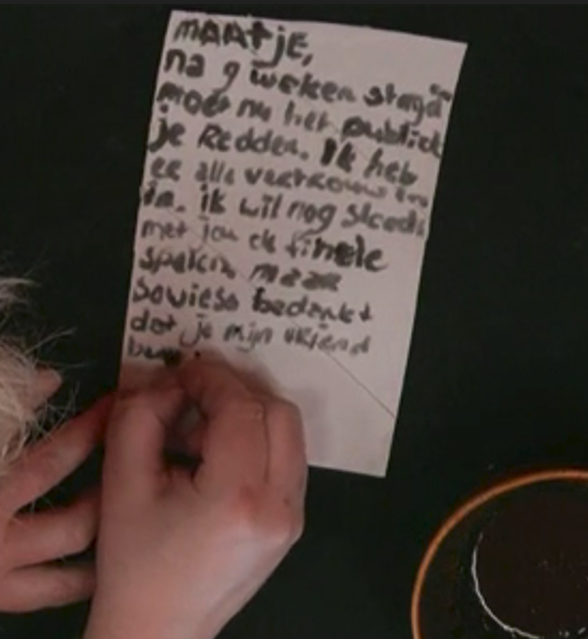 MAATJE,
na 9 weken strijd
moet nu het publiek
je Redden. Ik heb
er alle vertrouwen
in. ik wil nog steeds
met jou de finele
spelen, maar
sowieso bedankt
dat je mijn vriend
bent